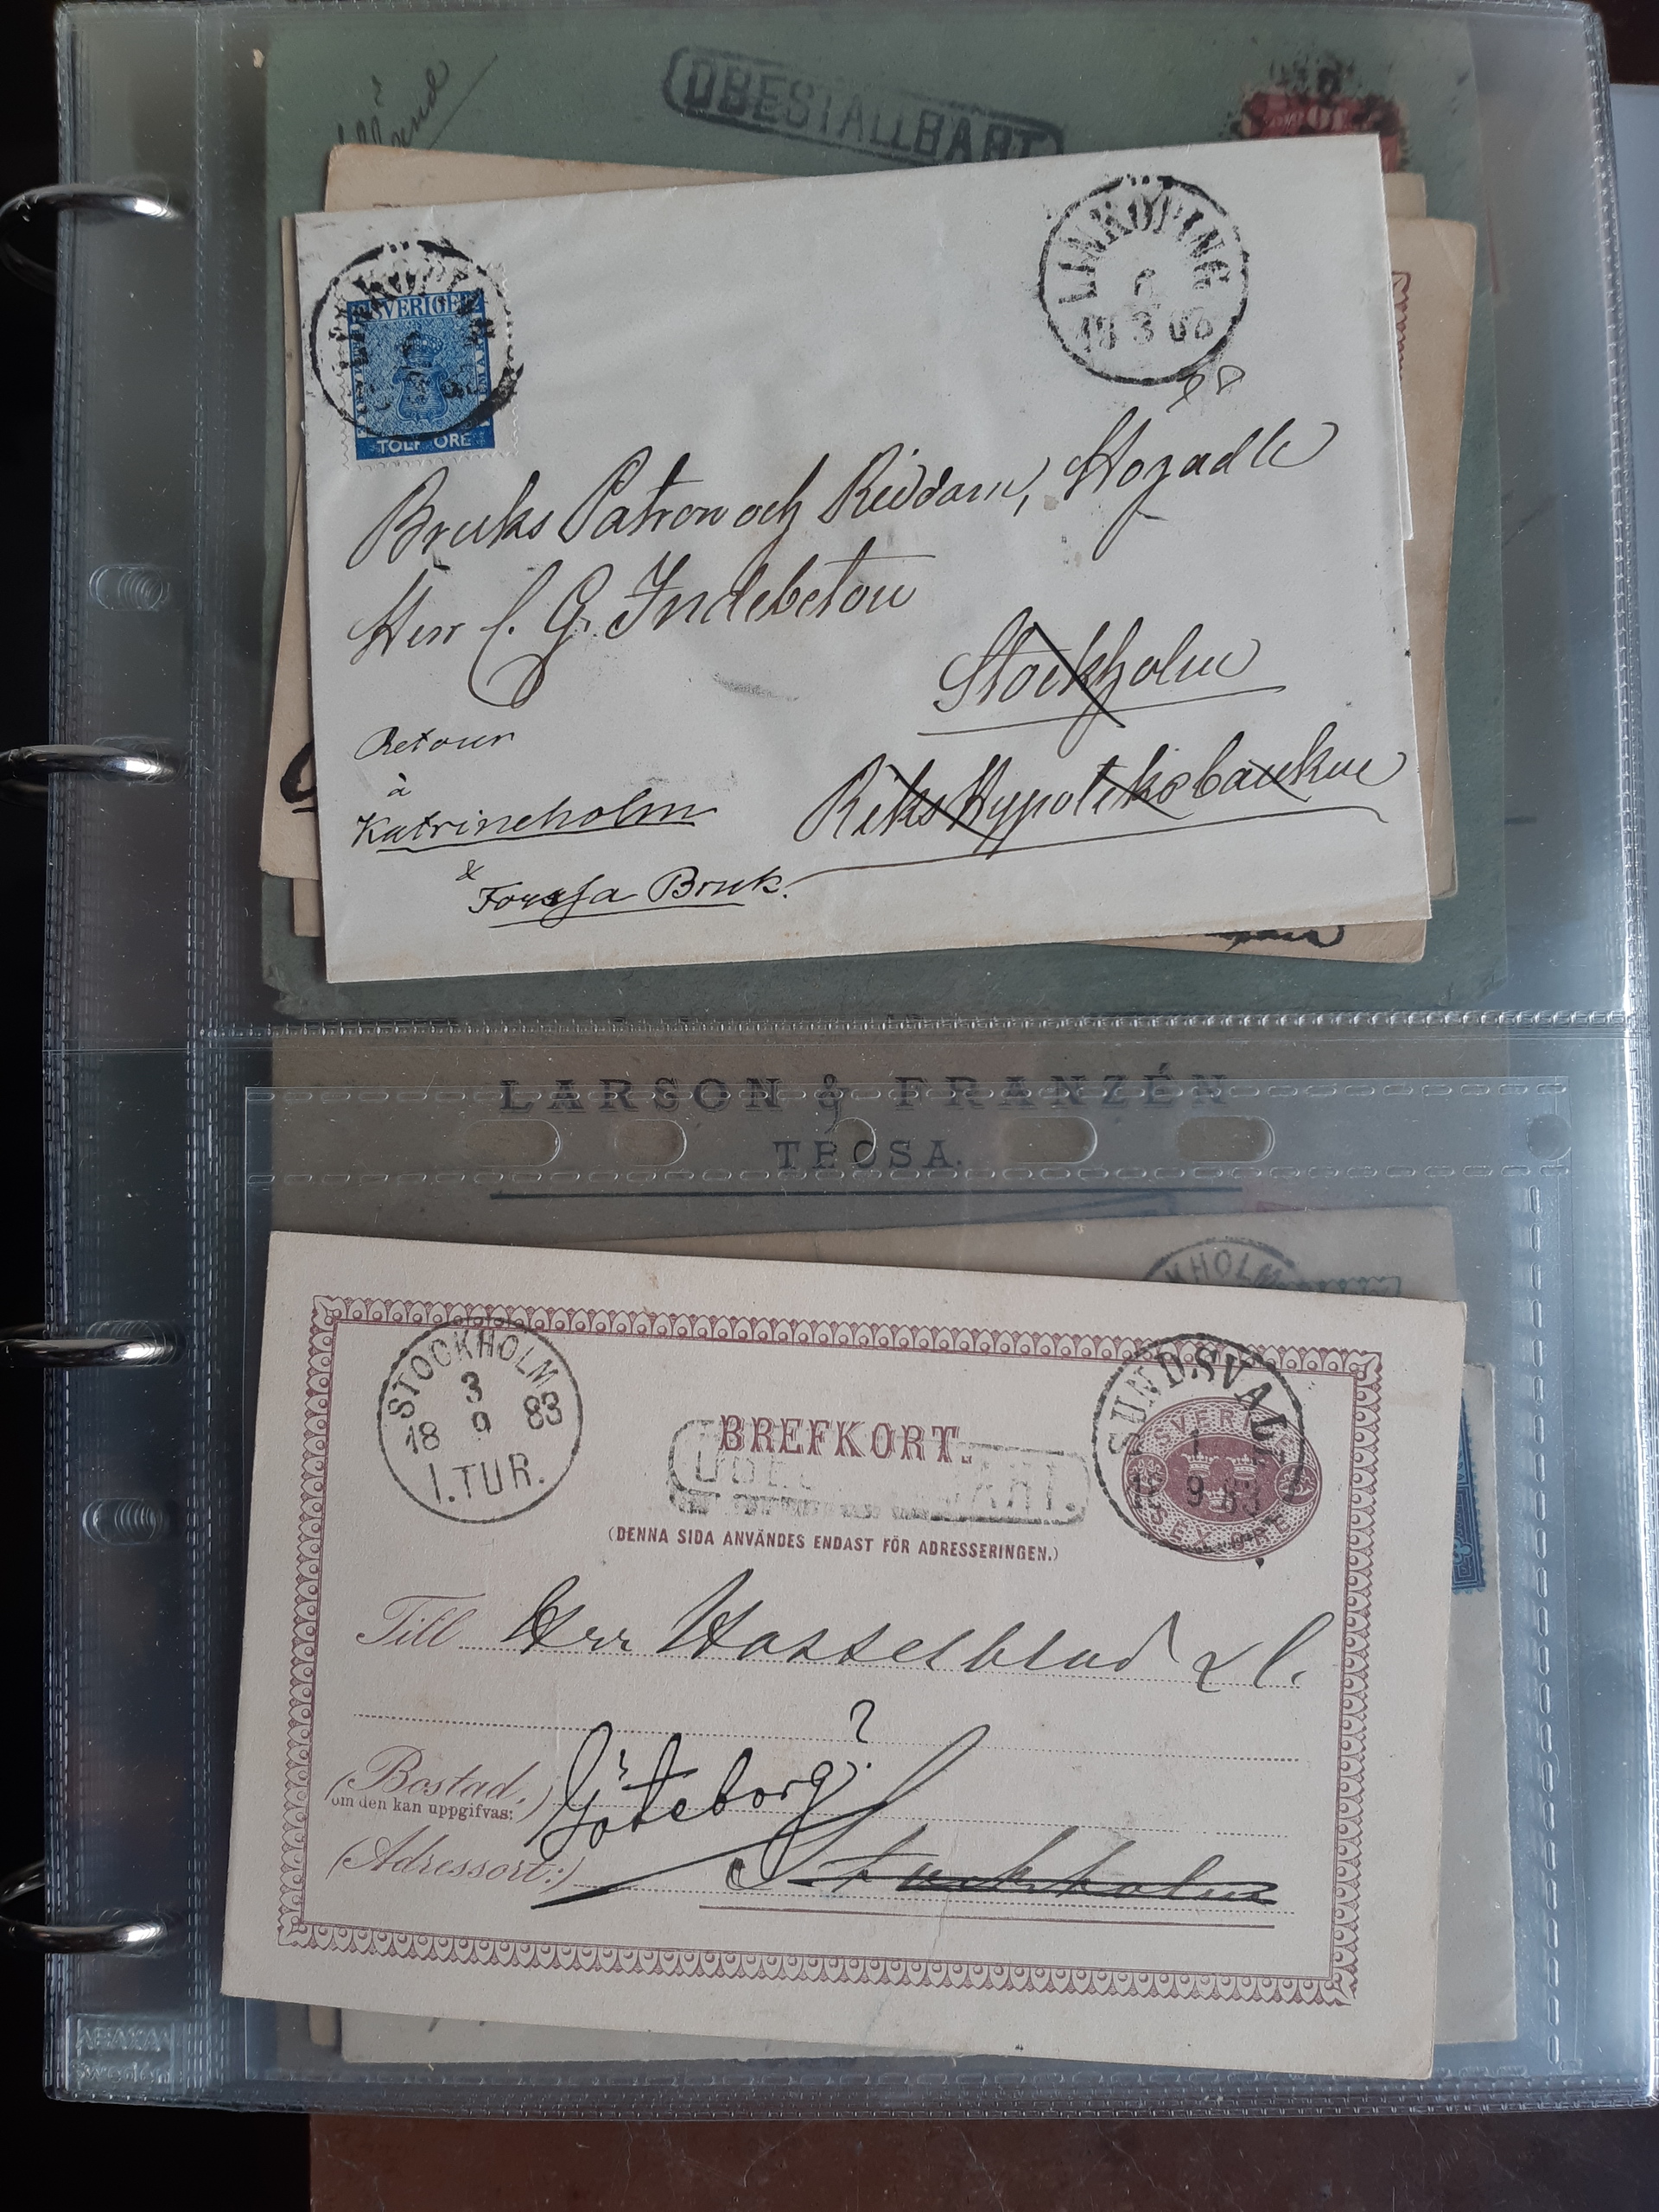 OBESTÄLLBART
LINKÖPING
6
18 3 66
SVERIGE
TOLF ÖRE
Bruks Patron och Riddaren, Högädle
Herr C. G. Indebetou
Stockholm
Retour
à
Katrineholm
Riks Hypoteksbanken
&
Forssa Bruk.
LARSON & FRANZÉN
TROSA.
KHOLM
STOCKHOLM
3
18 9 83
1.TUR.
BREFKORT.
SUNDSVALL
1
18 9 83
SVERIGE
SEX ÖRE
(DENNA SIDA ANVÄNDES ENDAST FÖR ADRESSERINGEN.)
Till Herr Hasselblad & C.
(Bostad,
om den kan uppgifvas:)
Göteborg?
(Adressort:)
Stockholm
ABAKA
Sweden